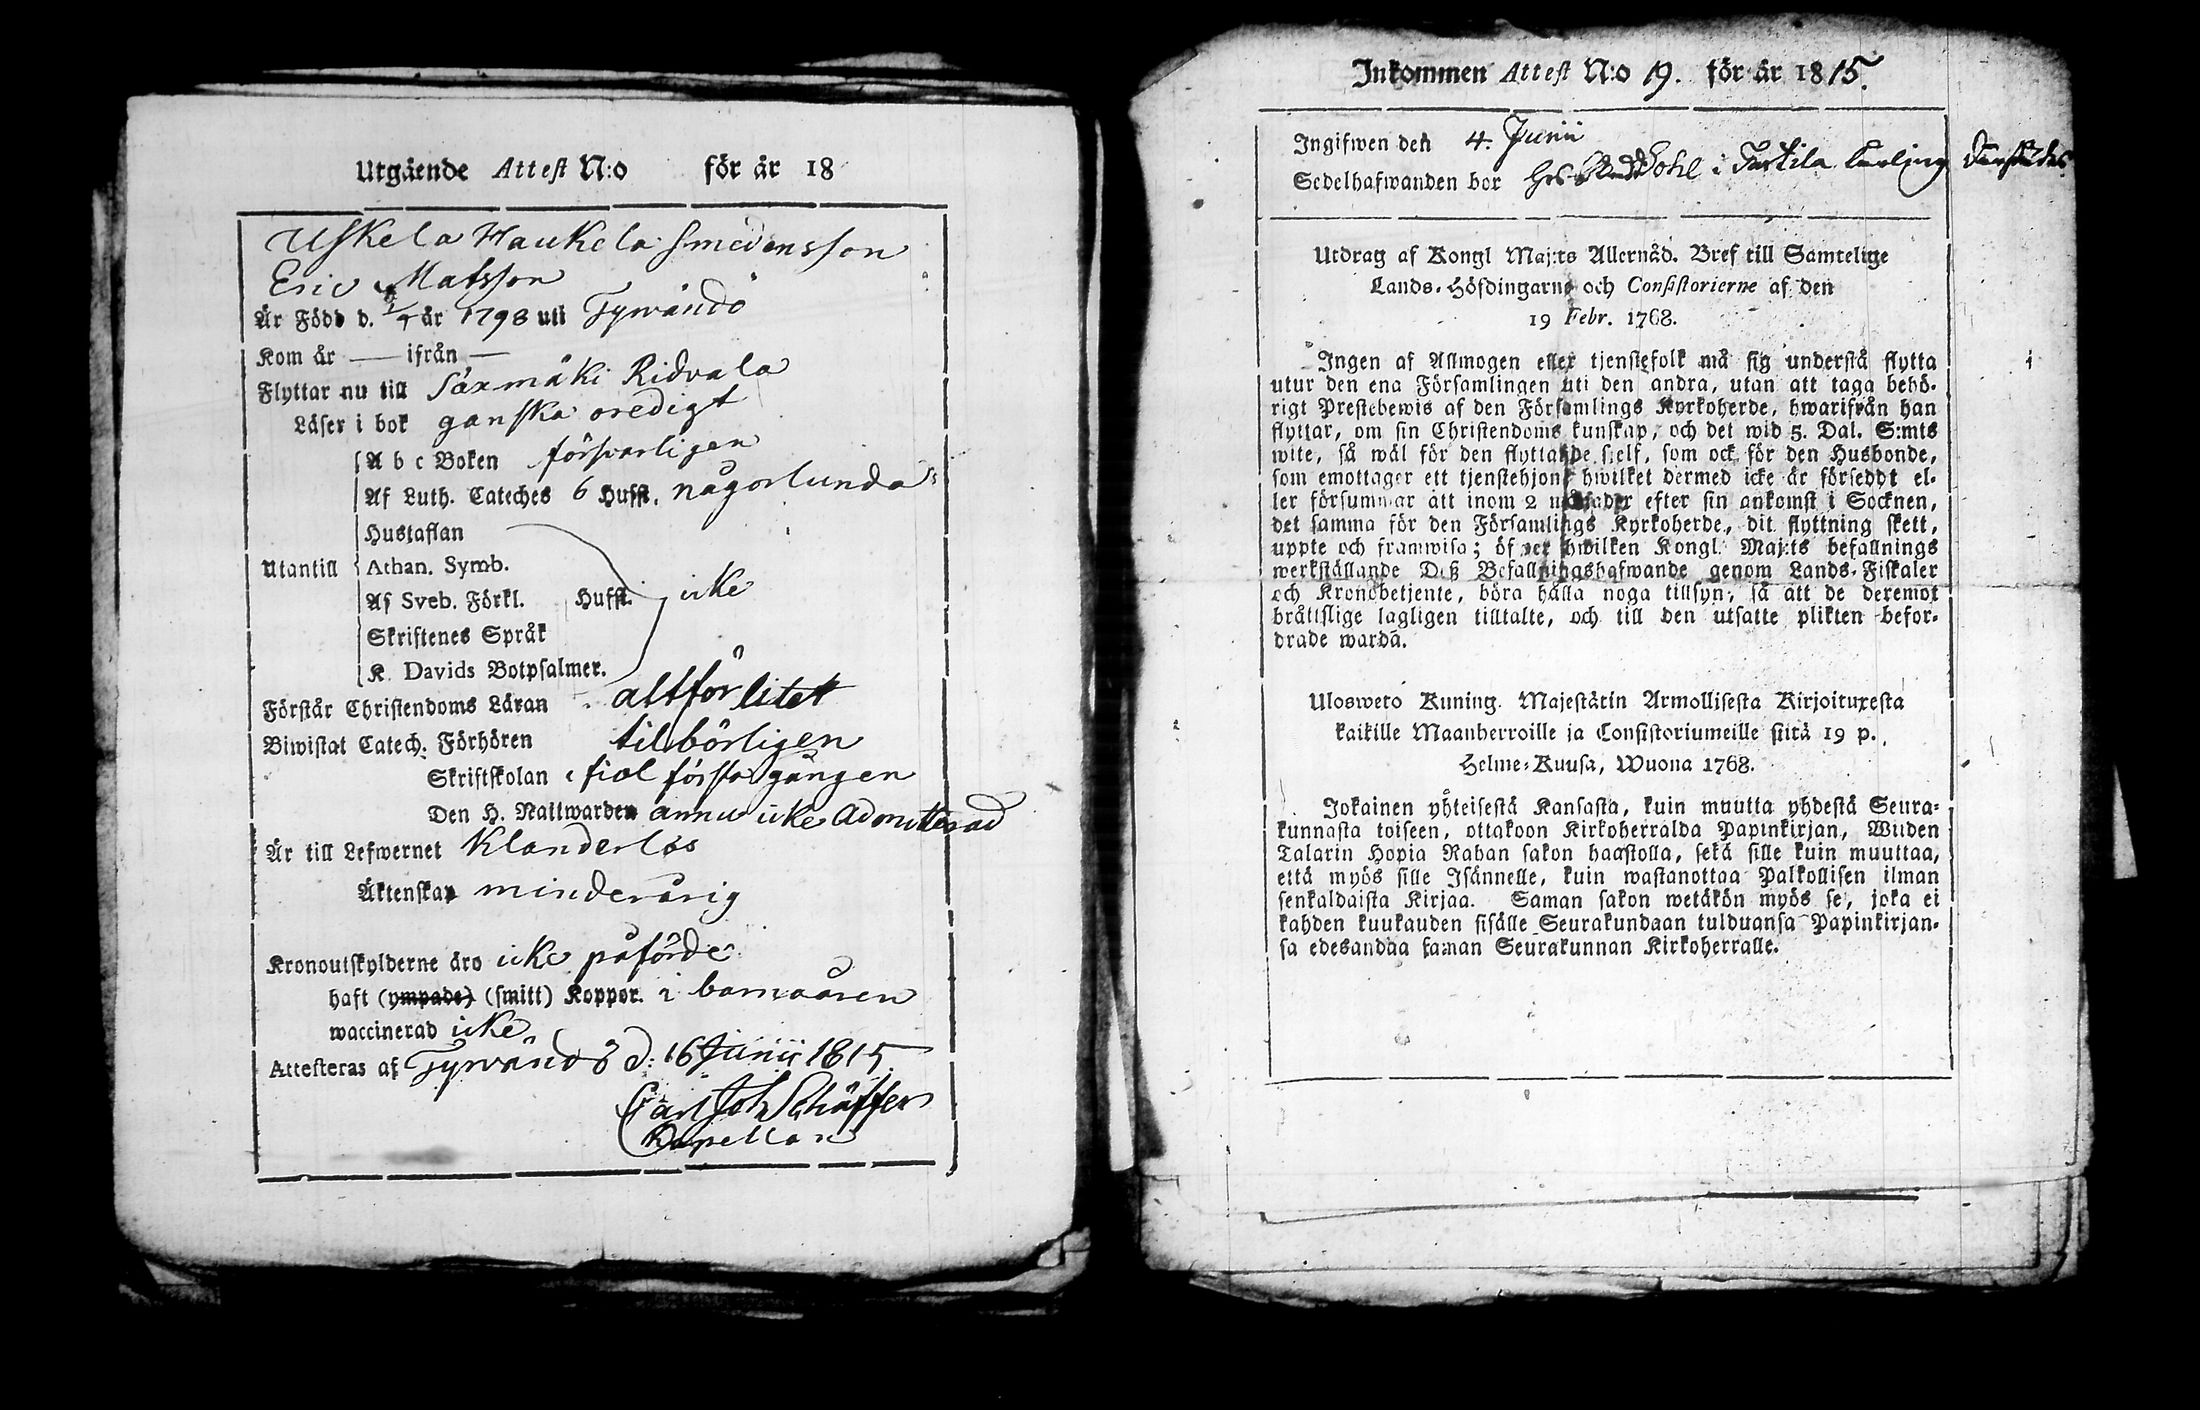 Utgående Attest N:o för år 18
Uskela Haukela Smedensson
Eric Matsson
Är Född d. 1/9 år 1798 uti Tyrwändö
Kom år — ifrån —
Flyttar nu till Säxmäki Ridvala
Läser i bok ganska oredigt
A b c Boken försvarligen
Af Luth. Cateches 6 Hufst. någorlunda
Hustaflan
Utantill Athan. Symb.
Af Sveb. Förkl. Hufst. icke
Skriftenes Språk
K. Davids Botpsalmer.
Förstår Christendoms Läran altför litet
Biwistat Catech. Förhören tilbörligen
Skriftskolan i fiol första gången
Den H. Nattwarden ännu icke Admitterad
Är till Lefwernet Klanderlös
Äktenskap minderårig
Kronoutskylderne äro icke påförde
haft (ympade) (smitt) Koppor. i barnaåren
waccinerad icke
Attesteras af Tyrwändö d: 16 Junii 1815
Carl Joh Schäffer
Capellan
Inkommen Attest N:o 19. för år 1815.
Ingifwen den 4. Junii
Sedelhafwanden bor hos i
Utdrag af Kongl Maj:ts Allernåd. Bref till Samtelige
Lands-Höfdingarne och Consistorierne af den
19 Febr. 1768.
Ingen af Allmogen eller tjenstefolk må sig understå flytta
utur den ena Församlingen uti den andra, utan att taga behö-
rigt Prestebewis af den Församlings Kyrkoherde, hwarifrån han
flyttar, om sin Christendoms kunskap, och det wid 5. Dal. S:mts
wite, så wäl för den flyttande sjelf, som ock för den Husbonde,
som emottager ett tjenstehjon, hwilket dermed icke är försedдt el-
ler försummar att inom 2 månader efter sin ankomst i Socknen,
det samma för den Församlings Kyrkoherde, dit flyttning skett,
uppte och framwisa; öfwer hwilken Kongl. Maj:ts befallnings
werkställande Deß Befallningshafwande genom Lands-Fiskaler
och Kronobetjente, böra hålla noga tillsyn, så att de deremot
bråttslige lagligen tilltalte, och till den utsatte plikten befor-
drade warda.
Ulosweto Kuning. Majestätin Armollisesta Kirjoituxesta
kaikille Maanherroille ja Consistoriumeille siitä 19 p.
Helme-Kuusa, Wuona 1768.
Jokainen yhteisestä Kansasta, kuin muutta yhdestä Seura-
kunnasta toiseen, ottakoon Kirkoherralda Papinkirjan, Wiiden
Talarin Hopia Rahan sakon haastolla, sekä sille kuin muuttaa,
että myös sille Isännelle, kuin wastanottaa Palkollisen ilman
senkaldaista Kirjaa. Saman sakon wetäkön myös se, joka ei
kahden kuukauden sisälle Seurakundaan tulduansa Papinkirjan-
sa edesandaa saman Seurakunnan Kirkoherralle.